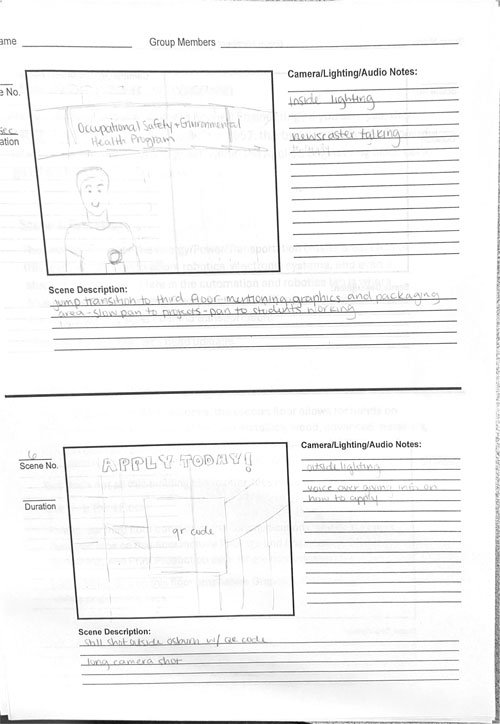 ame
Group Members
e No.
sec
ation
Occupational Safety + Environmental
Health Program
Camera/Lighting/Audio Notes:
inside lighting
newscaster talking
Scene Description:
jump transition to third floor mentioning graphics and packaging
area - slow pan to projects - pan to students working
6
Scene No.
Duration
APPLY TODAY!
qr code
Camera/Lighting/Audio Notes:
outside lighting
voice over giving info on
how to apply
Scene Description:
still shot outside osburn w/ QR code
long camera shot